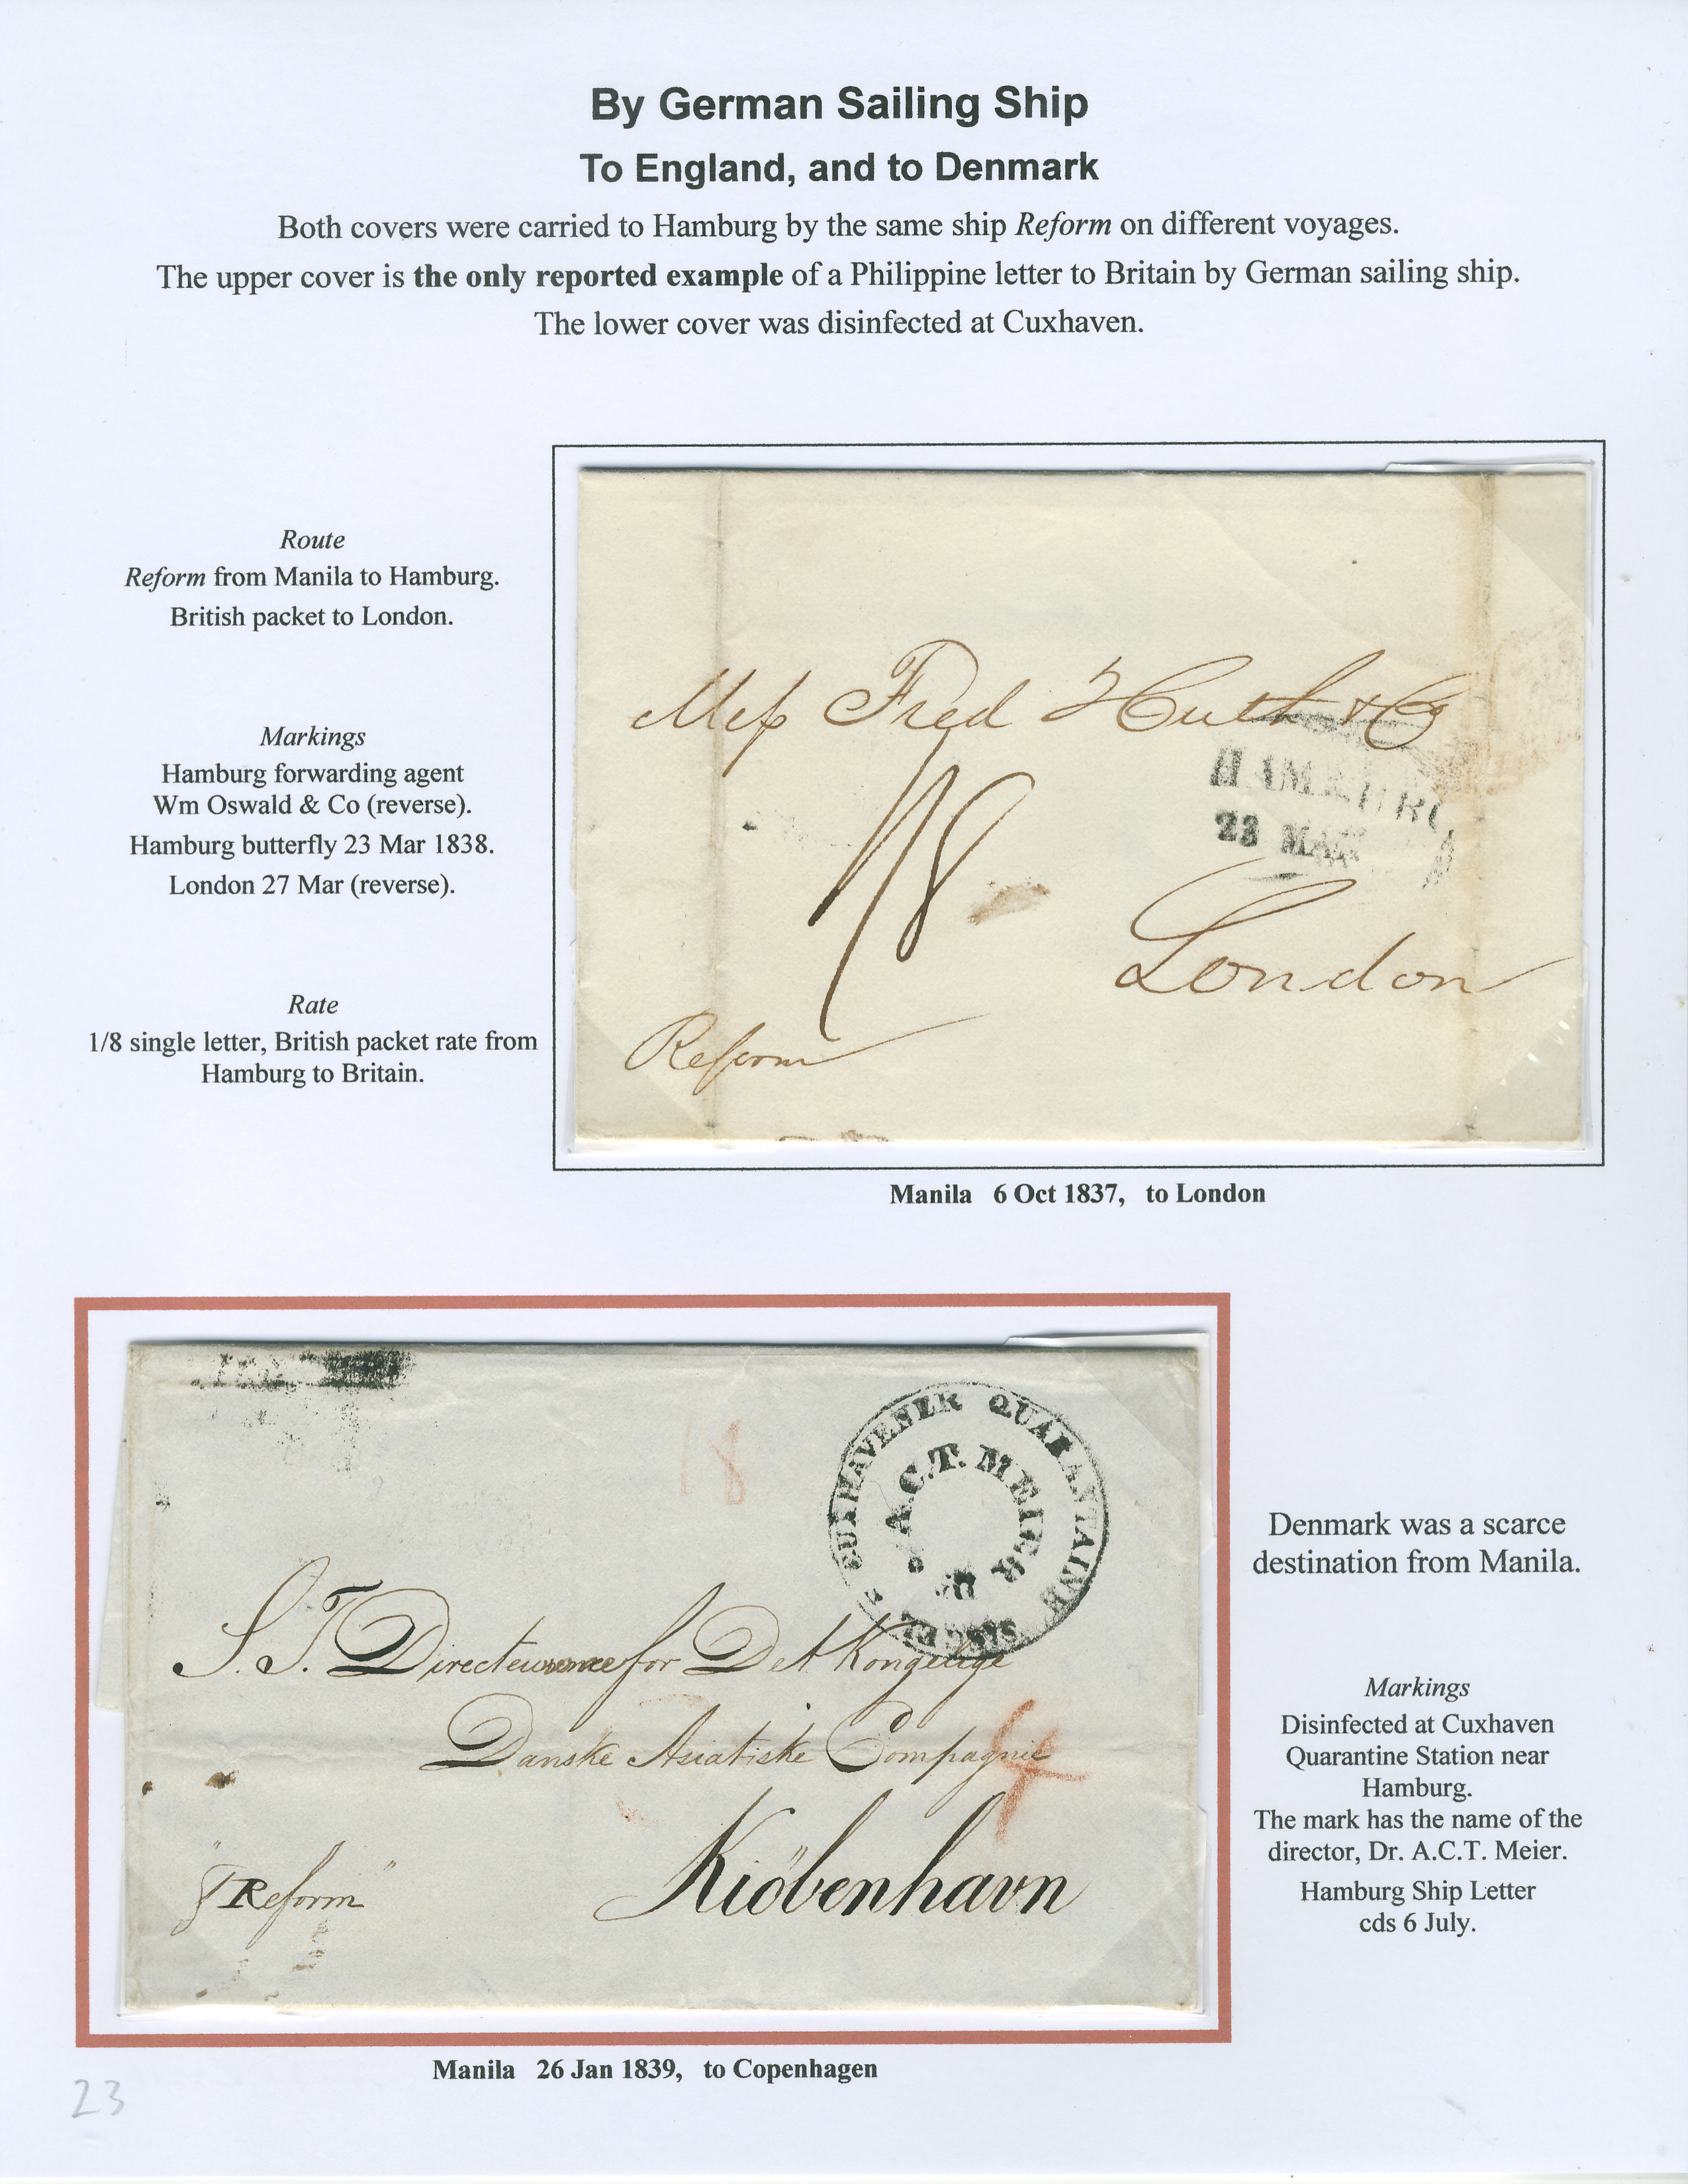 By German Sailing Ship
To England, and to Denmark
Both covers were carried to Hamburg by the same ship Reform on different voyages.
The upper cover is the only reported example of a Philippine letter to Britain by German sailing ship.
The lower cover was disinfected at Cuxhaven.
Route
Reform from Manila to Hamburg.
British packet to London.
Markings
Hamburg forwarding agent
Wm Oswald & Co (reverse).
Hamburg butterfly 23 Mar 1838.
London 27 Mar (reverse).
Rate
1/8 single letter, British packet rate from
Hamburg to Britain.
Mess Fred Huth & Co
HAMBURG
23 MAR
1/8
London
Reform
Manila 6 Oct 1837, to London
18
CUXHAVENER QUARANTAINE SIEGEL
A.C.T. MEIER
Dr
S. T. Directeurerne for Det Kongelige
Danske Asiatiske Compagnie
4
Kiöbenhavn
"Reform"
Manila 26 Jan 1839, to Copenhagen
Denmark was a scarce
destination from Manila.
Markings
Disinfected at Cuxhaven
Quarantine Station near
Hamburg.
The mark has the name of the
director, Dr. A.C.T. Meier.
Hamburg Ship Letter
cds 6 July.
23